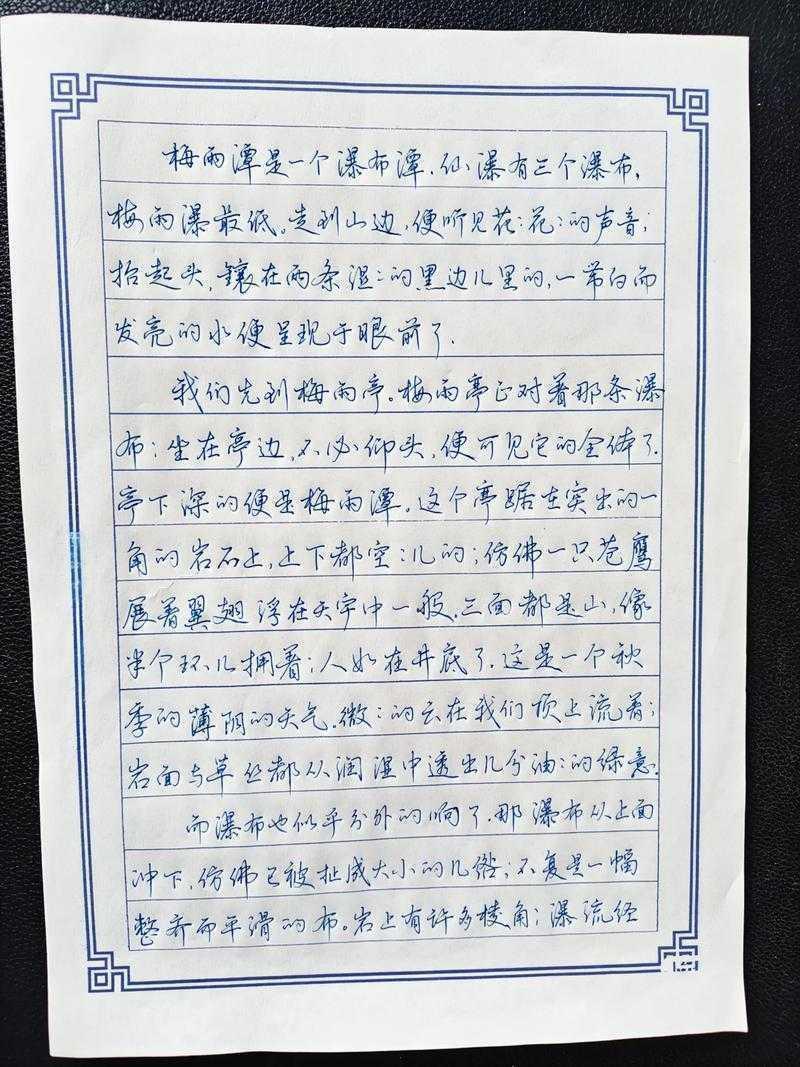 梅雨潭是一个瀑布潭.仙瀑有三个瀑布,
梅雨瀑最低。走到山边,便听见花:花:的声音;
抬起头,镶在两条湿:的黑边儿里的,一带白而
发亮的水便呈现于眼前了.
我们先到梅雨亭。梅雨亭正对着那条瀑
布;坐在亭边,不必仰头,便可见它的全体了.
亭下深的便是梅雨潭。这个亭踞在突出的一
角的岩石上,上下都空:儿的;仿佛一只苍鹰
展着翼翅浮在天宇中一般.三面都是山,像
半个环儿拥着;人如在井底了.这是一个秋
季的薄阴的天气.微:的云在我们顶上流着;
岩面与草丝都从润湿中透出几分油:的绿意.
而瀑布也似乎分外的响了.那瀑布从上面
冲下,仿佛已被扯成大小的几绺;不复是一幅
整齐而平滑的布。岩上有许多棱角;瀑流经